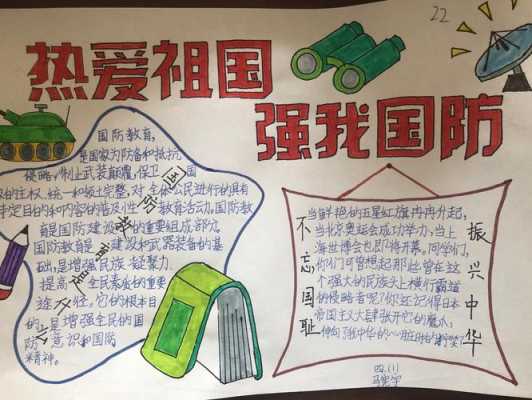 22
热爱祖国
强我国防
国防教育,
是国家为防备和抵抗
侵略,制止武装颠覆,保卫国
的主权、统一和领土完整,对全体公民进行的具有
特定目的和内容的普及性教育活动。国防教
育是国防建设的重要组成部分,
国防教育是建设和武器装备的基
础,是增强民族凝聚力、
提高全民素质的重要
途径。它的根本目
的,是增强全民的国
防意识和国防
精神。
国防教育
不忘国耻
当鲜艳的五星红旗冉冉升起,
当北京奥运会成功举办,当上
海世博会也即将开幕,同学们,
你们可曾想起那些曾在这
个强大的民族头上横行霸道
的侵略者呢?你还记得日本
帝国主义大肆张开它的魔爪,
伸向中华的心脏时的
振兴中华
四.(1)